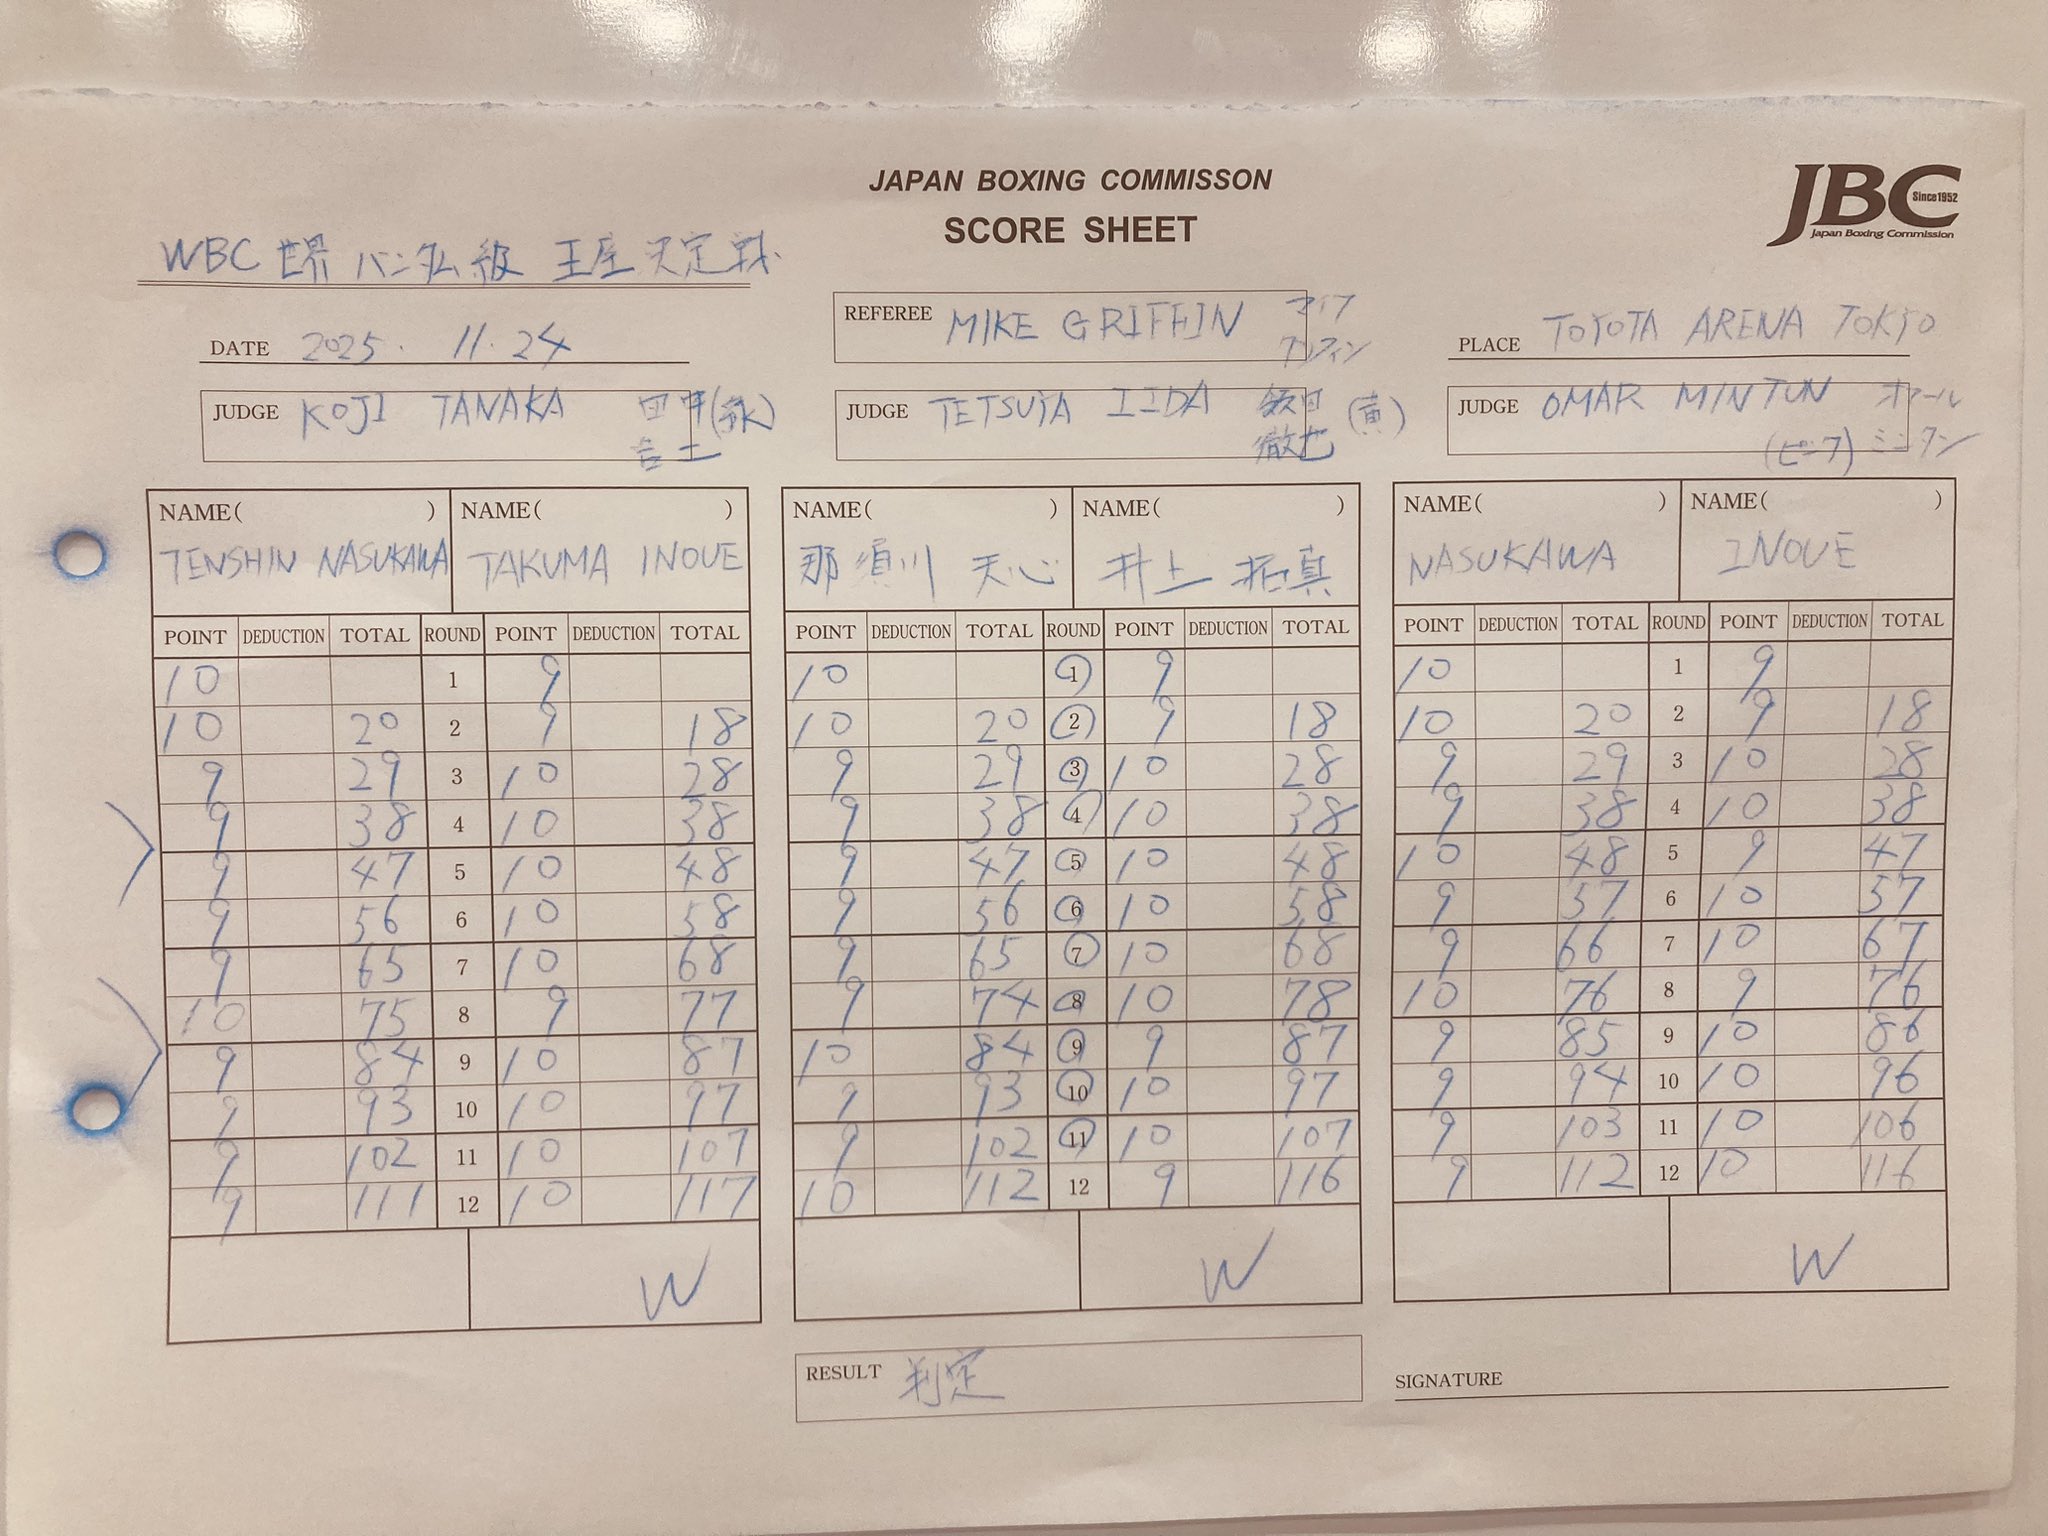 JAPAN BOXING COMMISSON
SCORE SHEET
JBC Since1952
Japan Boxing Commission
WBC 世界 バンタム級 王座決定戦
DATE 2025. 11.24
REFEREE MIKE GRIFFIN マイク
グリフィン
PLACE TOYOTA ARENA TOKYO
JUDGE KOJI TANAKA 田中
JUDGE TETSUYA IIDA 飯田 (黄)
徹也
JUDGE OMAR MINTUN オマール
(ピンク) ミンタン
NAME( ) NAME( ) NAME( ) NAME( ) NAME( ) NAME( )
TENSHIN NASUKAWA TAKUMA INOUE 那須川 天心 井上 拓真 NASUKAWA INOUE
POINT DEDUCTION TOTAL ROUND POINT DEDUCTION TOTAL POINT DEDUCTION TOTAL ROUND POINT DEDUCTION TOTAL POINT DEDUCTION TOTAL ROUND POINT DEDUCTION TOTAL
10 1 9 10 1 9 10 1 9
10 20 2 9 18 10 20 2 9 18 10 20 2 9 18
9 29 3 10 28 9 29 3 10 28 9 29 3 10 28
9 38 4 10 38 9 38 4 10 38 9 38 4 10 38
9 47 5 10 48 9 47 5 10 48 10 48 5 9 47
9 56 6 10 58 9 56 6 10 58 9 57 6 10 57
9 65 7 10 68 9 65 7 10 68 9 66 7 10 67
10 75 8 9 77 9 74 8 10 78 10 76 8 9 76
9 84 9 10 87 10 84 9 9 87 9 85 9 10 86
9 93 10 10 97 9 93 10 10 97 9 94 10 10 96
9 102 11 10 107 9 102 11 10 107 9 103 11 10 106
9 111 12 10 117 10 112 12 9 116 9 112 12 10 116
W W W
RESULT 判定
SIGNATURE